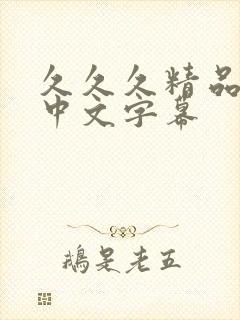 久久久精品
中文字幕
鵝是老五